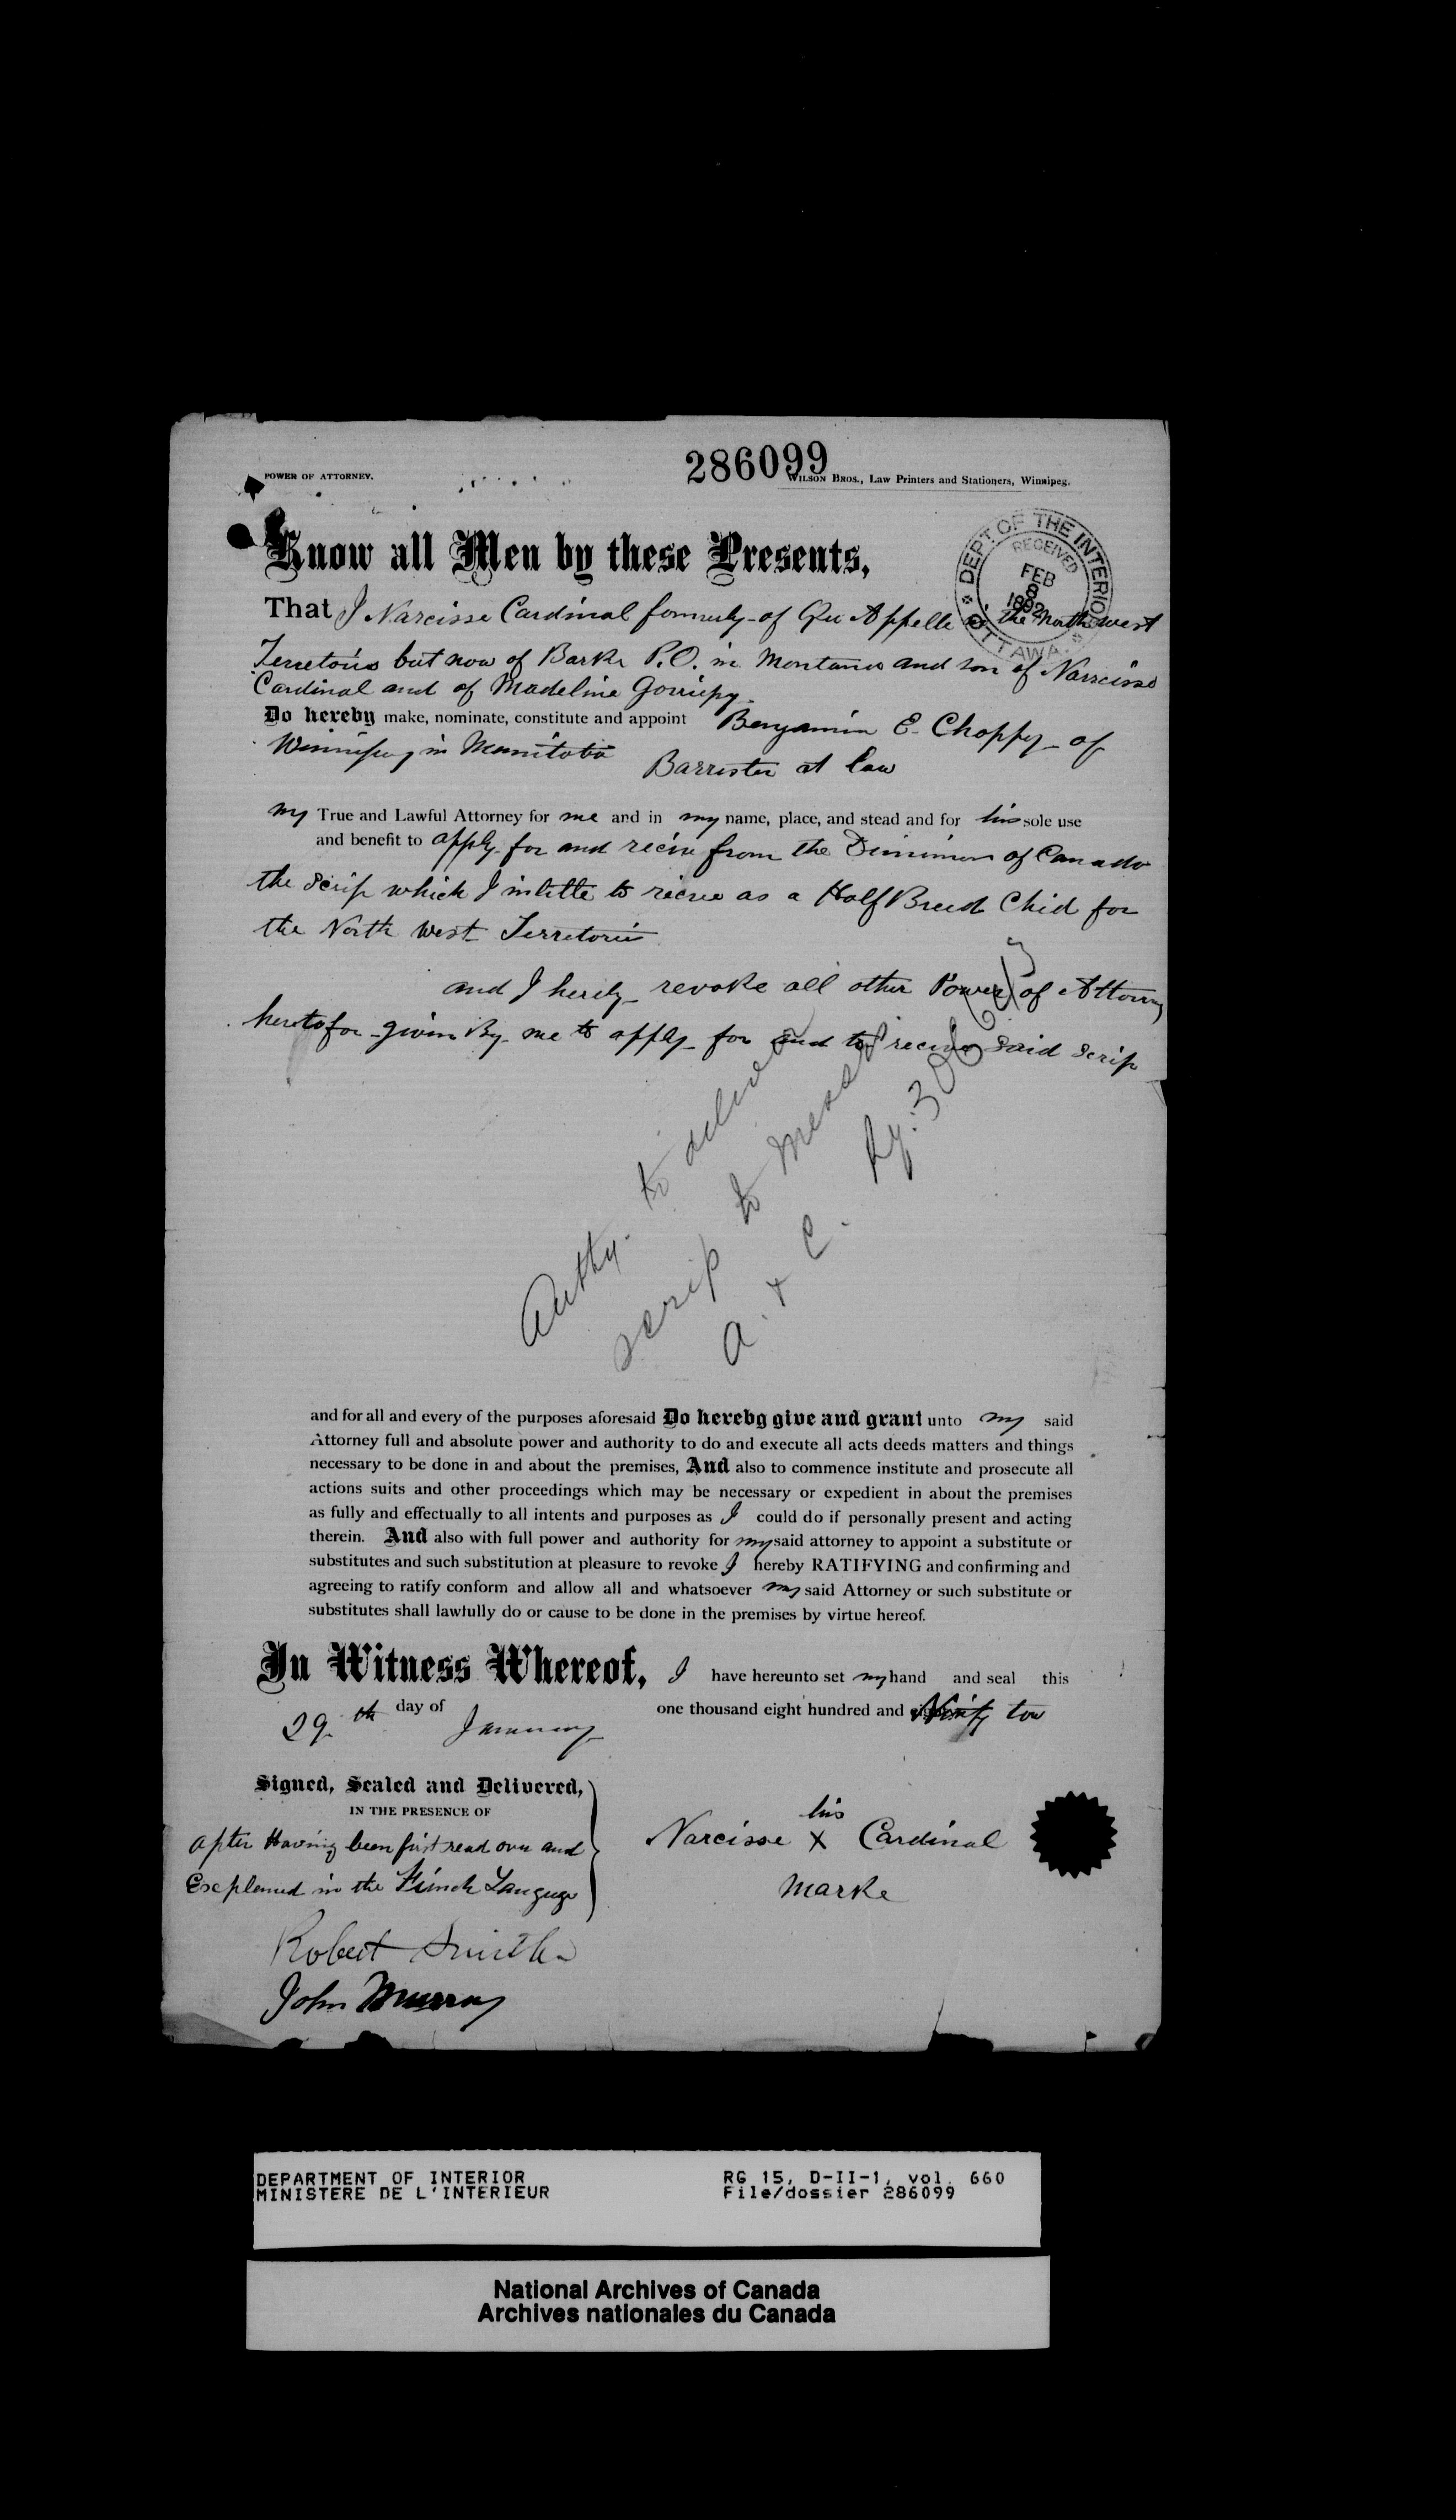 286099
POWER OF ATTORNEY.
WILSON BROS., Law Printers and Stationers, Winnipeg.
Know all Men by these Presents,
DEPT. OF THE INTERIOR
RECEIVED
FEB
8
1892
OTTAWA
That I Narcisse Cardinal formerly of Qu Appelle in the North west
Terretoris but now of Barke P.O. in Montana and son of Narcisse
Cardinal and of Madeline Gorriepy
Do hereby make, nominate, constitute and appoint Benjamin E. Choppy of
Winnipeg in Manitoba
Barrister at Law
my True and Lawful Attorney for me and in my name, place, and stead and for his sole use
and benefit to apply for and recive from the Dominion of Canada
the Scrip which I intitle to recive as a Half Breed Chid for
the North West Terretoris
and I herely revoke all other Power of Attorny
heretofor given By me to apply for and to receive said scrip
Authy. to deliver
scrip to Messrs
A. & C.
and for all and every of the purposes aforesaid Do hereby give and grant unto my said
Attorney full and absolute power and authority to do and execute all acts deeds matters and things
necessary to be done in and about the premises, And also to commence institute and prosecute all
actions suits and other proceedings which may be necessary or expedient in about the premises
as fully and effectually to all intents and purposes as I could do if personally present and acting
therein. And also with full power and authority for my said attorney to appoint a substitute or
substitutes and such substitution at pleasure to revoke I hereby RATIFYING and confirming and
agreeing to ratify conform and allow all and whatsoever my said Attorney or such substitute or
substitutes shall lawfully do or cause to be done in the premises by virtue hereof.
In Witness Whereof, I have hereunto set my hand and seal this
29th day of January one thousand eight hundred and Ninty tow
Signed, Sealed and Delivered,
IN THE PRESENCE OF
after Having been first read over and
Explened in the French Languge
his
Narcisse X Cardinal
marke
Robert Smith
John Murray
DEPARTMENT OF INTERIOR
MINISTERE DE L'INTERIEUR
RG 15, D-II-1, vol. 660
File/dossier 286099
National Archives of Canada
Archives nationales du Canada